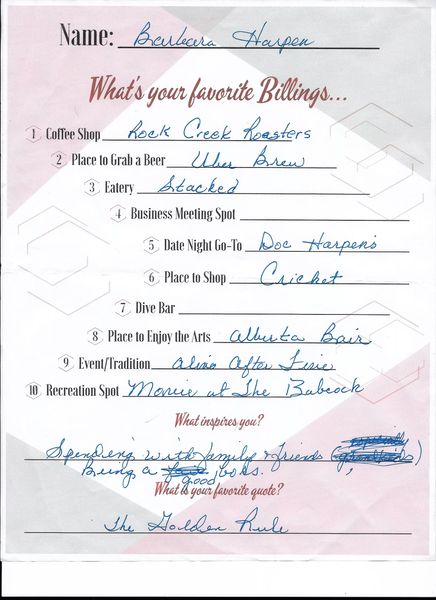 Name: Barbara Harpen
What's your favorite Billings...
1 Coffee Shop Rock Creek Roasters
2 Place to Grab a Beer Uber Brew
3 Eatery Stacked
4 Business Meeting Spot
5 Date Night Go-To Doc Harpen's
6 Place to Shop Cricket
7 Dive Bar
8 Place to Enjoy the Arts Alberta Bair
9 Event/Tradition Alive After Five
10 Recreation Spot Movie at The Babcock
What inspires you?
Spending with family & friends
Being a good boss.
What is your favorite quote?
The Golden Rule